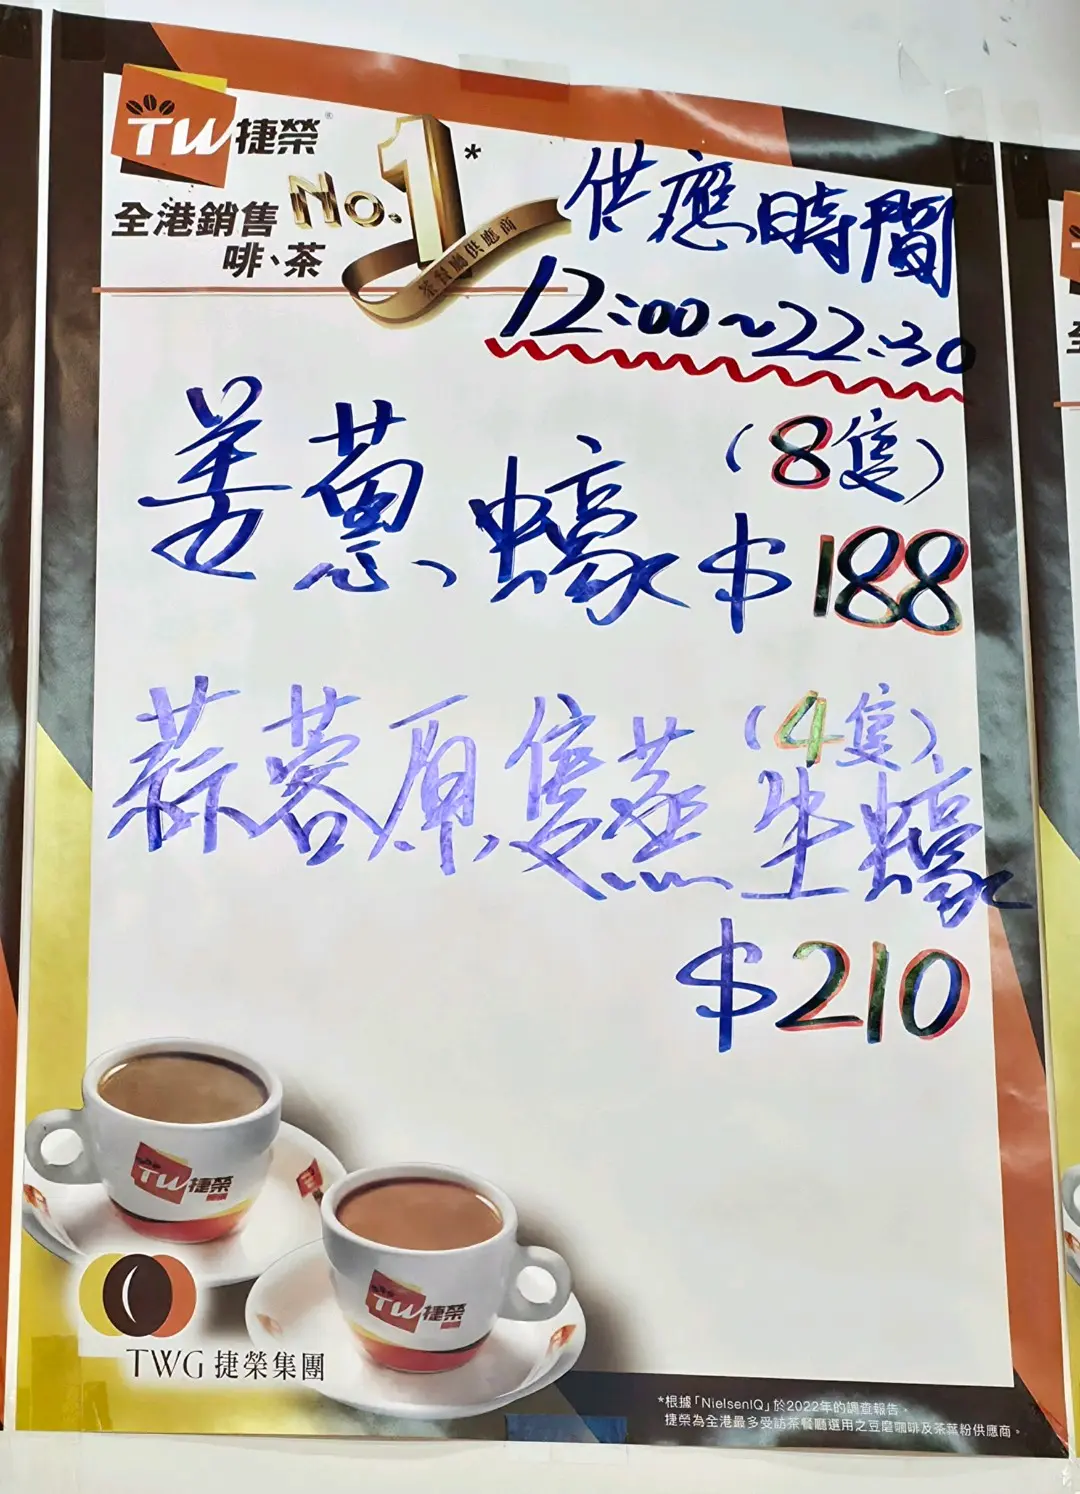 TW捷榮®
全港銷售
啡、茶
No.1*
茶餐廳供應商
供應時間
12:00~22:30
(8隻)
姜蔥蠔 $188
(4隻)
蒜蓉原隻蒸生蠔
$210
TW捷榮
TW捷榮
TWG 捷榮集團
*根據「NielsenIQ」於2022年的調查報告。
捷榮為全港最多受訪茶餐廳選用之豆磨咖啡及茶葉粉供應商。